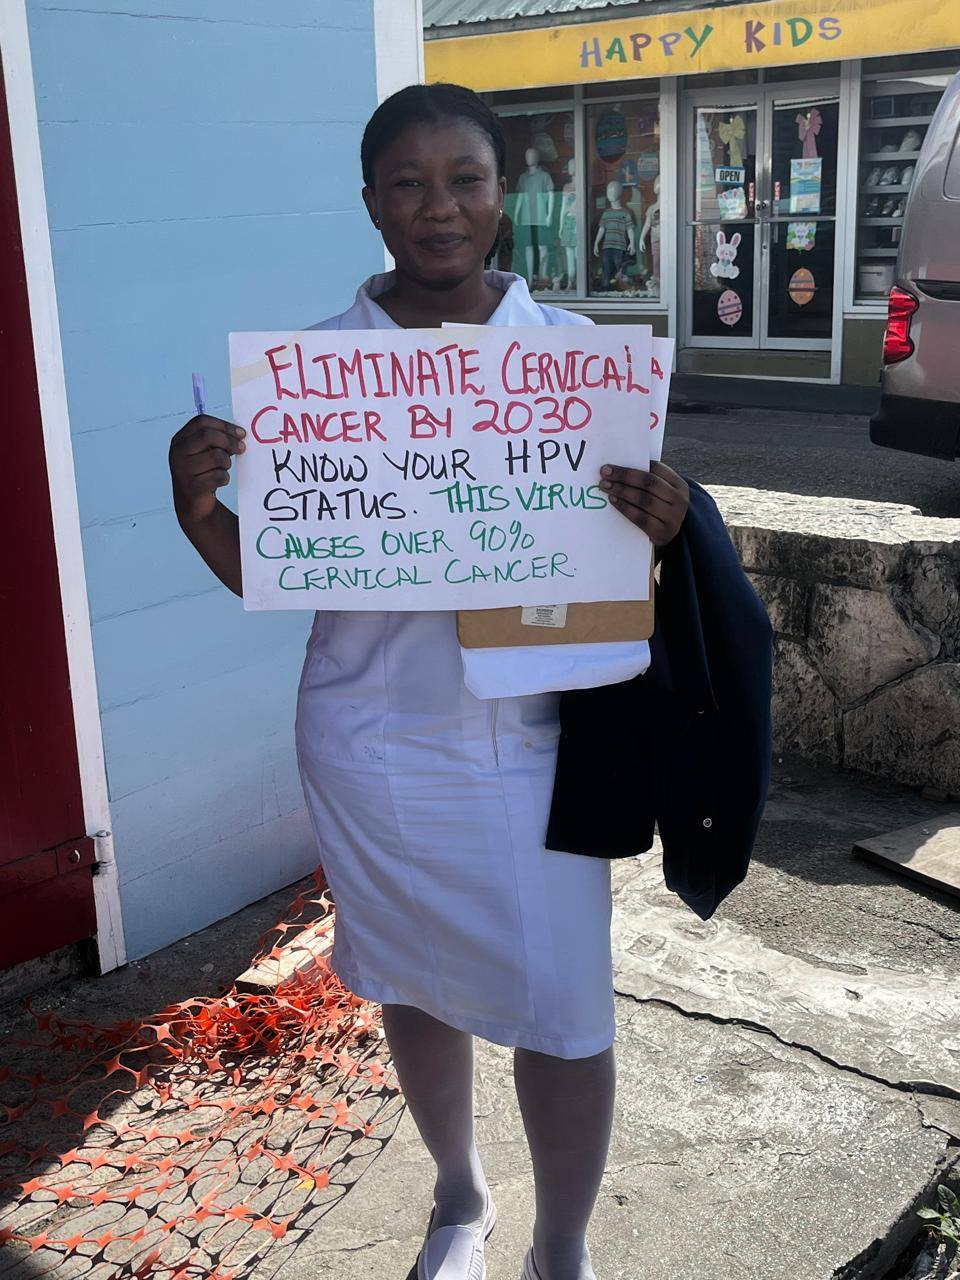 HAPPY KIDS
OPEN
ELIMINATE CERVICAL
CANCER BY 2030
KNOW YOUR HPV
STATUS. THIS VIRUS
CAUSES OVER 90%
CERVICAL CANCER.